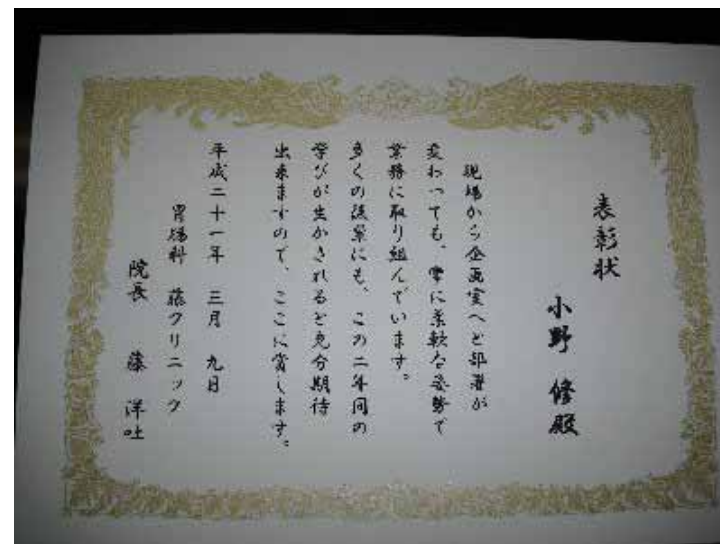 表彰状
小野 修殿
現場から企画室へと部署が
変わっても、常に柔軟な姿勢で
業務に取り組んでいます。
多くの後輩にも、この二年間の
学びが生かされると充分期待
出来ますので、ここに賞します。
平成二十一年 三月 九日
胃腸科 藤クリニック
院長 藤 洋吐